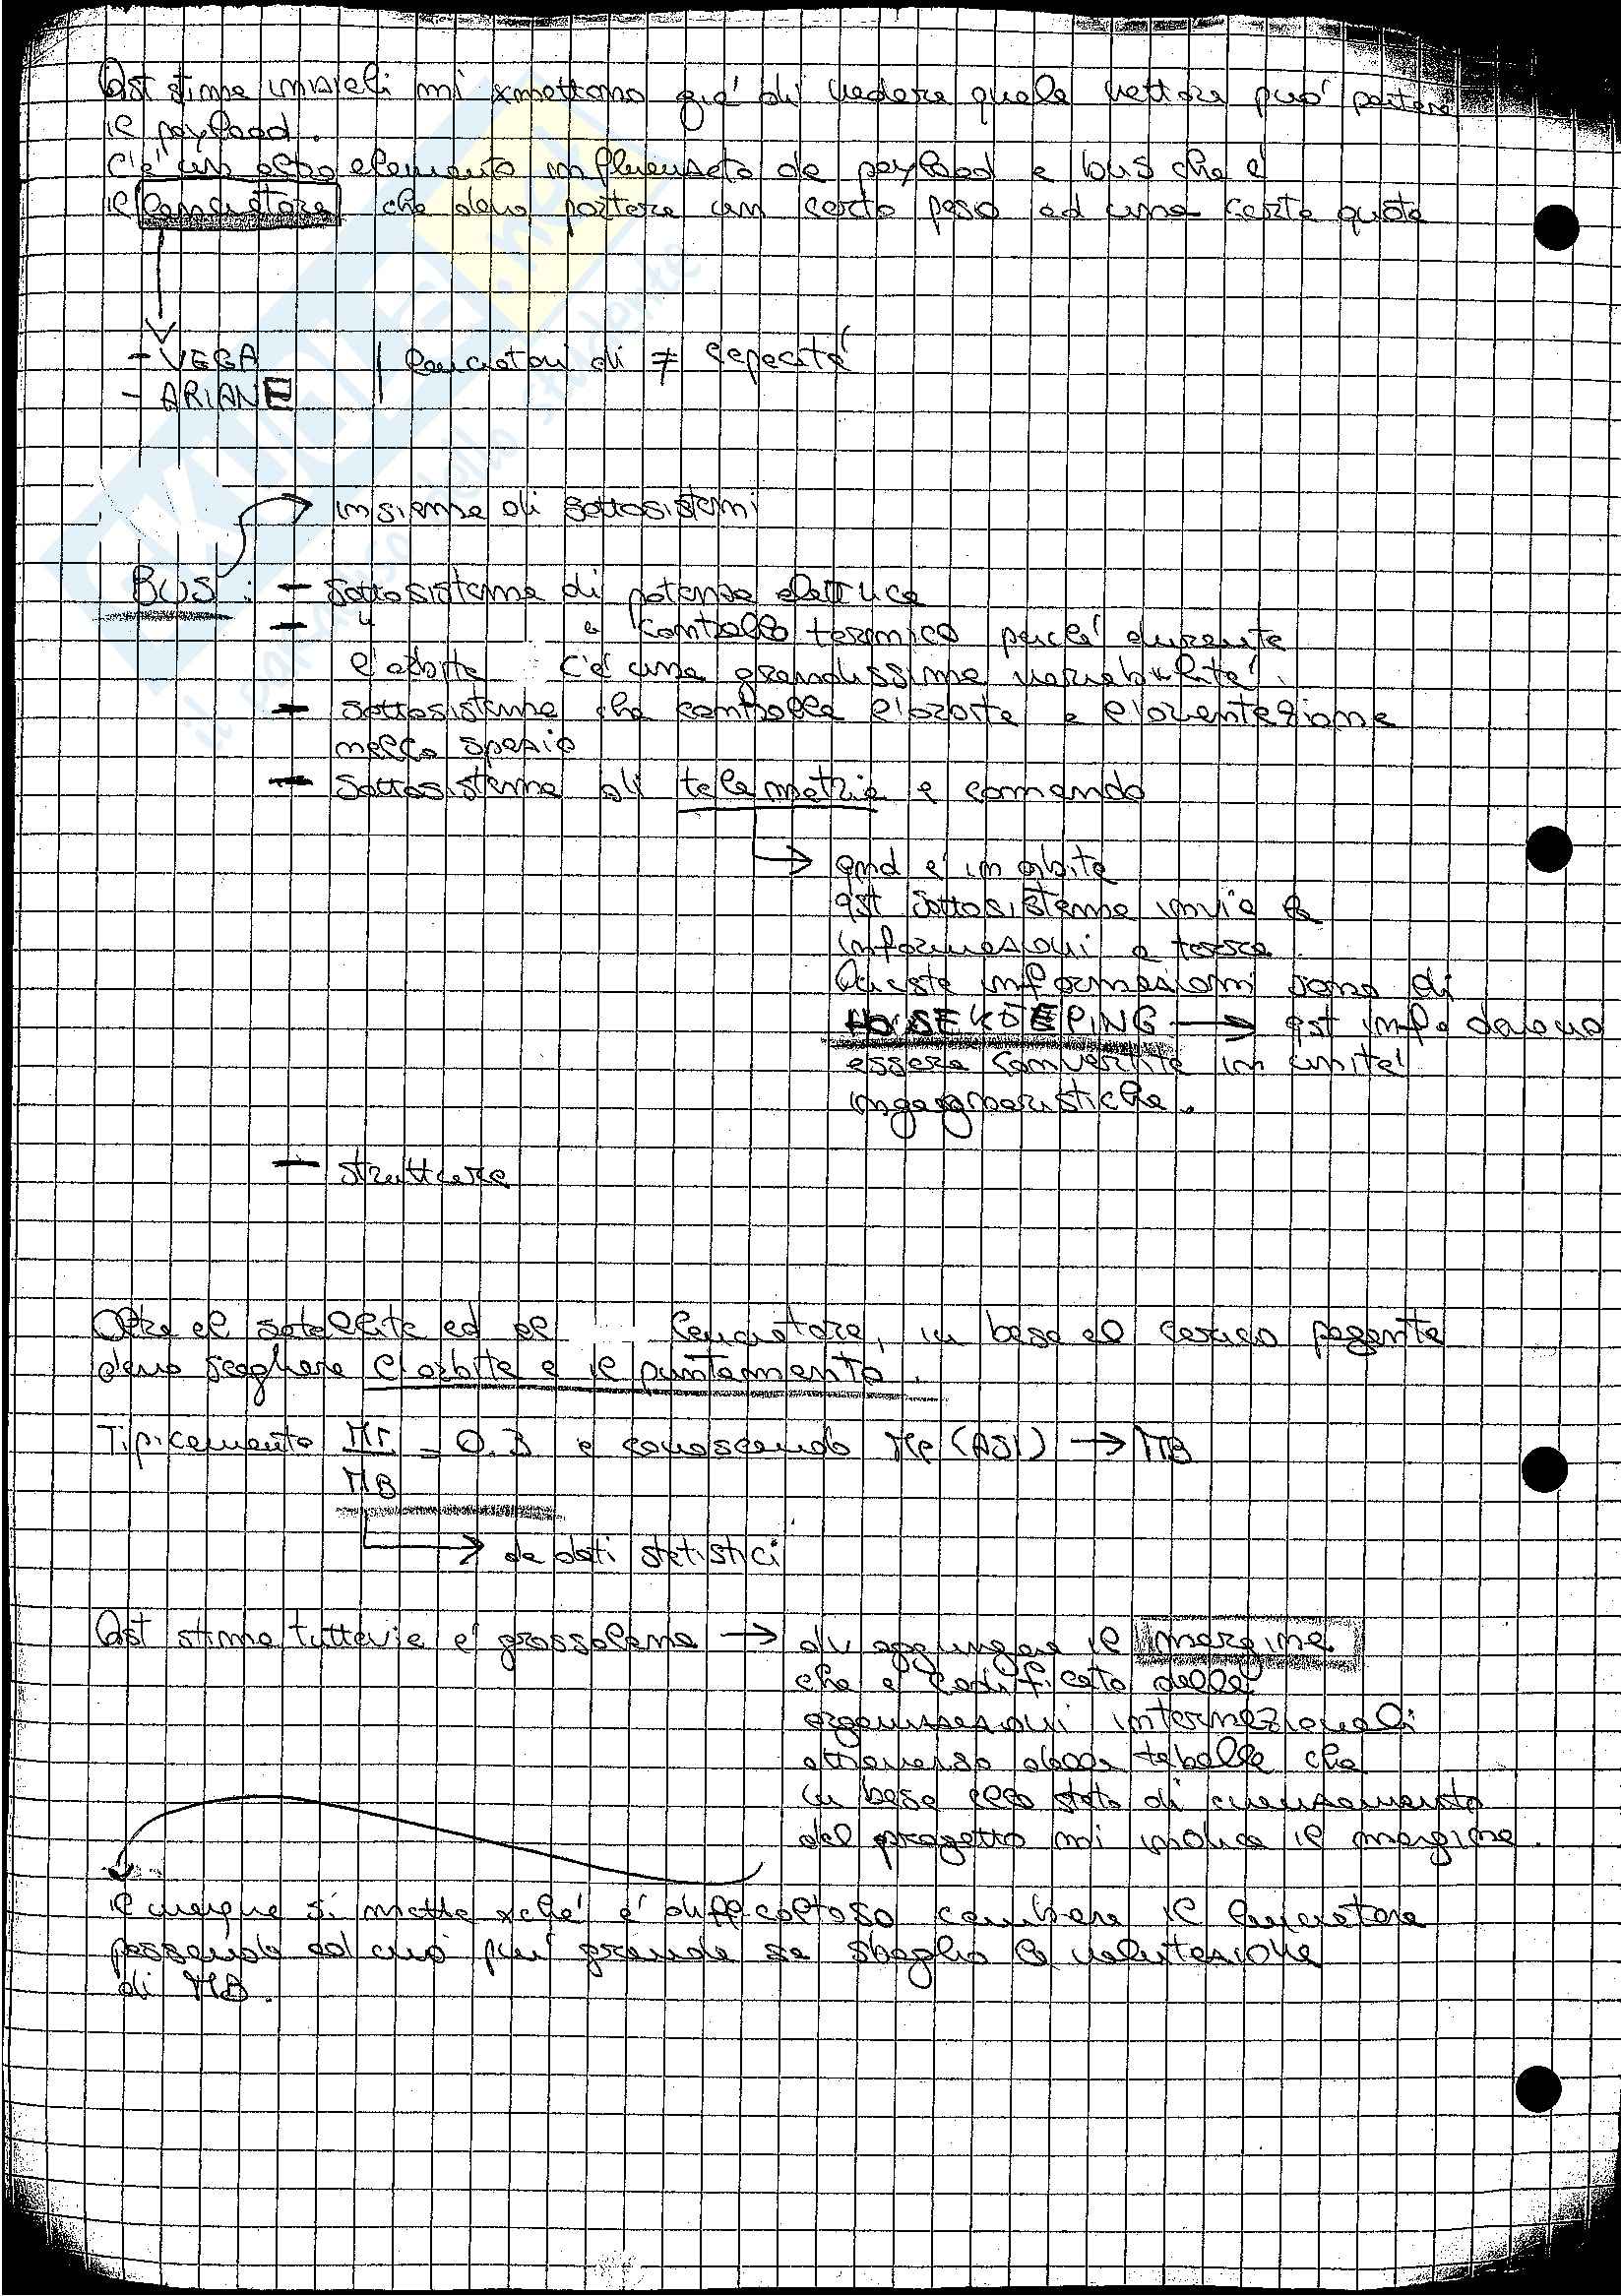 Qst stime iniziali mi xmettono già di vedere quale vettore può portare
il payload.
C'è un altro elemento influenzato da payload e bus che è
il lanciatore che deve portare un certo peso ad una certa quota
- VEGA
- ARIANE
lanciatori di ≠ capacità
insieme di sottosistemi
BUS: - sottosistema di potenza elettrica
- " " controllo termico perché durante
l'orbita c'è una grandissima variabilità.
- sottosistema che controlla l'orbita e l'orientazione
nello spazio
- sottosistema di telemetria e comando
qnd è in orbita
qst sottosistema invia le
informazioni a terra.
Queste informazioni sono di
HOUSEKEEPING → qst inf. devono
essere convertite in unità
ingegneristiche.
- struttura
Oltre al satellite ed al lanciatore, in base al carico pagante
devo scegliere l'orbita e il puntamento.
Tipicamente MP/MB = 0.3 e conoscendo MP (ASI) → MB
da dati statistici
Qst stima tuttavia è grossolana → dv aggiungere il margine
che è codificato dalle
organizzazioni internazionali
attraverso delle tabelle che
in base allo stato di avanzamento
del progetto mi indica il margine.
il margine si mette xché è difficoltoso cambiare il lanciatore
passando ad uno più grande se sbaglio la valutazione
di MB.